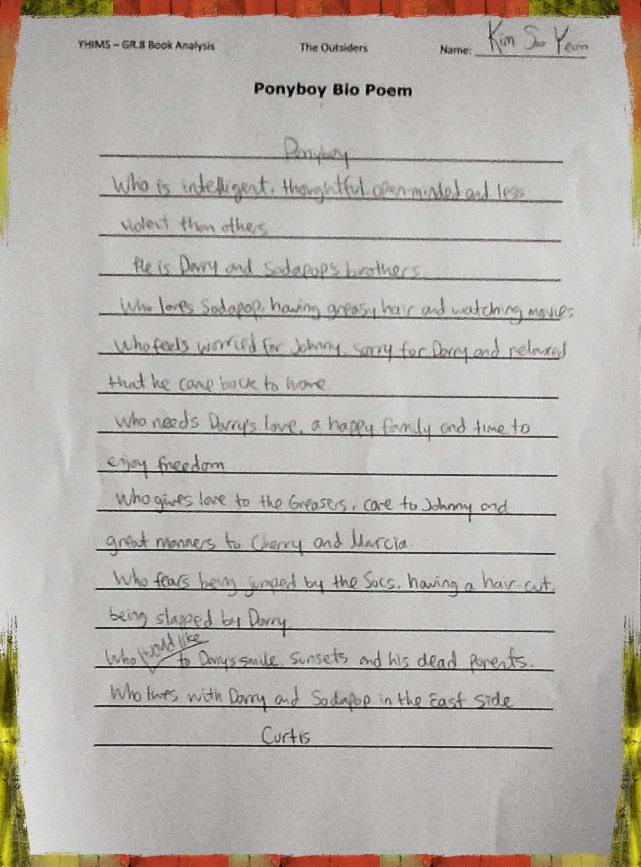 YHIMS – GR.8 Book Analysis The Outsiders Name: Kim Soo Yeon
Ponyboy Bio Poem
Ponyboy
Who is intelligent, thoughtful, open-minded and less
violent than others
He is Darry and Sodapop's brothers
Who loves Sodapop, having greasy hair and watching movies
Who feels worried for Johnny, sorry for Darry and relaxed
that he came back to home
Who needs Darry's love, a happy family and time to
enjoy freedom
Who gives love to the Greasers, care to Johnny and
great manners to Cherry and Marcia.
Who fears being jumped by the Socs, having a hair-cut,
being slapped by Darry.
Who would like to Darry's smile, sunsets and his dead parents.
Who lives with Darry and Sodapop in the East side
Curtis